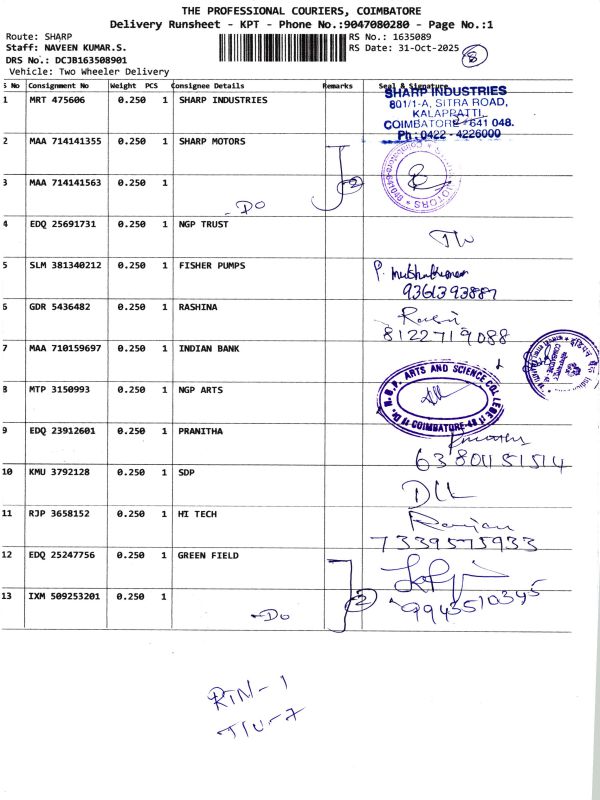 THE PROFESSIONAL COURIERS, COIMBATORE
Delivery Runsheet - KPT - Phone No.:9047080280 - Page No.:1
Route: SHARP RS No.: 1635089
Staff: NAVEEN KUMAR.S. RS Date: 31-Oct-2025 8
DRS No.: DCJB163508901
Vehicle: Two Wheeler Delivery
S No Consignment No Weight PCS Consignee Details Remarks Seal & Signature
1 MRT 475606 0.250 1 SHARP INDUSTRIES
SHARP INDUSTRIES
801/1-A, SITRA ROAD,
KALAPPATTI,
COIMBATORE - 641 048.
Ph : 0422 - 4226000
2 MAA 714141355 0.250 1 SHARP MOTORS
3 MAA 714141563 0.250 1
-Do 2
MOTORS
4 EDQ 25691731 0.250 1 NGP TRUST
5 SLM 381340212 0.250 1 FISHER PUMPS
9361393887
6 GDR 5436482 0.250 1 RASHINA
8122719088
7 MAA 710159697 0.250 1 INDIAN BANK
8 MTP 3150993 0.250 1 NGP ARTS
Dr. N.G.P. ARTS AND SCIENCE COLLEGE
COIMBATORE-48
9 EDQ 23912601 0.250 1 PRANITHA
63801151514
10 KMU 3792128 0.250 1 SDP
11 RJP 3658152 0.250 1 HI TECH
7339575933
12 EDQ 25247756 0.250 1 GREEN FIELD
13 IXM 509253201 0.250 1
-Do 2
9943510345
RTN-1